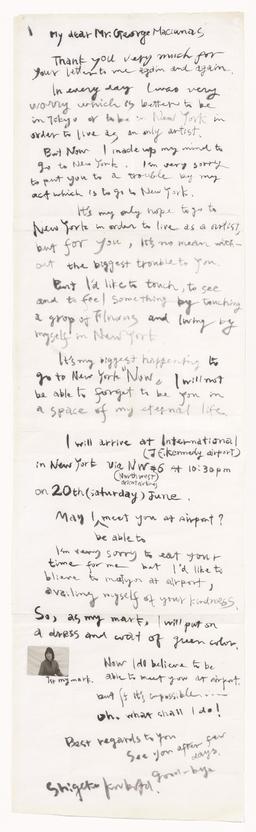 1
My dear Mr. George Maciunas
Thank you very much for
your letter to me again and again.
In every day I was very
worry which is better to be
in Tokyo or to be in New York in
order to live as an only artist.
But Now I made up my mind to
go to New York. I'm very sorry
to put you to a trouble by my
act which is to go to New York.
It's my only hope to go to
New York in order to live as a artist,
but for you, it's no mean with-
out the biggest trouble to you.
But I'd like to touch, to see
and to feel something by touching
a grop of Fluxus and living by
myself in New York.
It's my biggest happening to
go to New York Now. I will not
be able to forget to be you in
a space of my eternal life.
I will arrive at International
(J.F. Kennedy airport)
in New York via NW#6 at 10:30pm
(Northwest)
on 20th (saturday) June.
May I meet you at airport?
be able to
I'm very sorry to eat your
time for me but I'd like to
blieve to you at airport,
availing myself of your kindness.
So, as my mark, I will put on
a dress and coat of green color.
Now I do believe to be
able to meet you at airport.
my mark.
but if it's impossible.....
oh. what shall I do!
Best regards to you
See you after few
days.
Good-bye
Shigeko Kubota.